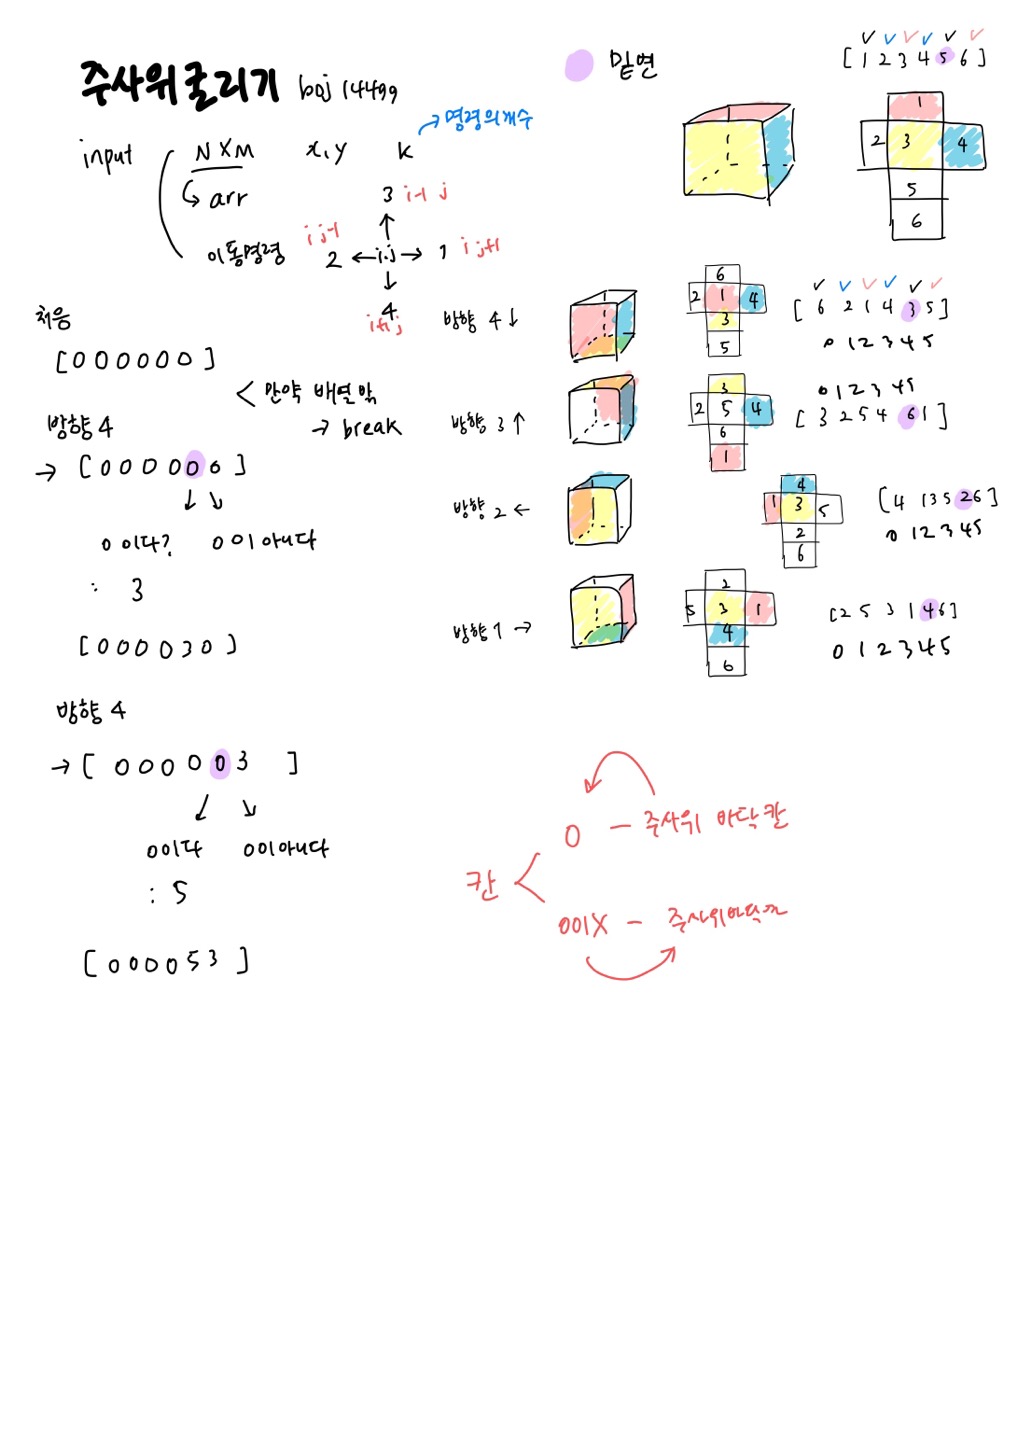 주사위굴리기 boj 14499
밑면
[ 1 2 3 4 5 6 ]
1
2 3 4
5
6
1
→ 명령의개수
input N X M x, y k
→ arr
이동명령
3 i-1 j
i j-1
2 ← i.j → 1 i j+1
4
i+1 j
처음
[ 0 0 0 0 0 0 ]
< 만약 배열밖
→ break
방향 4
→ [ 0 0 0 0 0 0 ]
0 이다? 0 이아니다
: 3
[ 0 0 0 0 3 0 ]
방향 4
→ [ 0 0 0 0 0 3 ]
0이다 0이아니다
: 5
[ 0 0 0 0 5 3 ]
방향 4 ↓
6
2 1 4
3
5
[ 6 2 1 4 3 5 ]
0 1 2 3 4 5
방향 3 ↑
3
2 5 4
6
1
0 1 2 3 4 5
[ 3 2 5 4 6 1 ]
방향 2 ←
4
1 3 5
2
6
[ 4 1 3 5 2 6 ]
0 1 2 3 4 5
방향 1 →
2
5 3 1
4
6
[ 2 5 3 1 4 6 ]
0 1 2 3 4 5
칸 <
0 - 주사위 바닥 칸
0이X - 주사위바닥